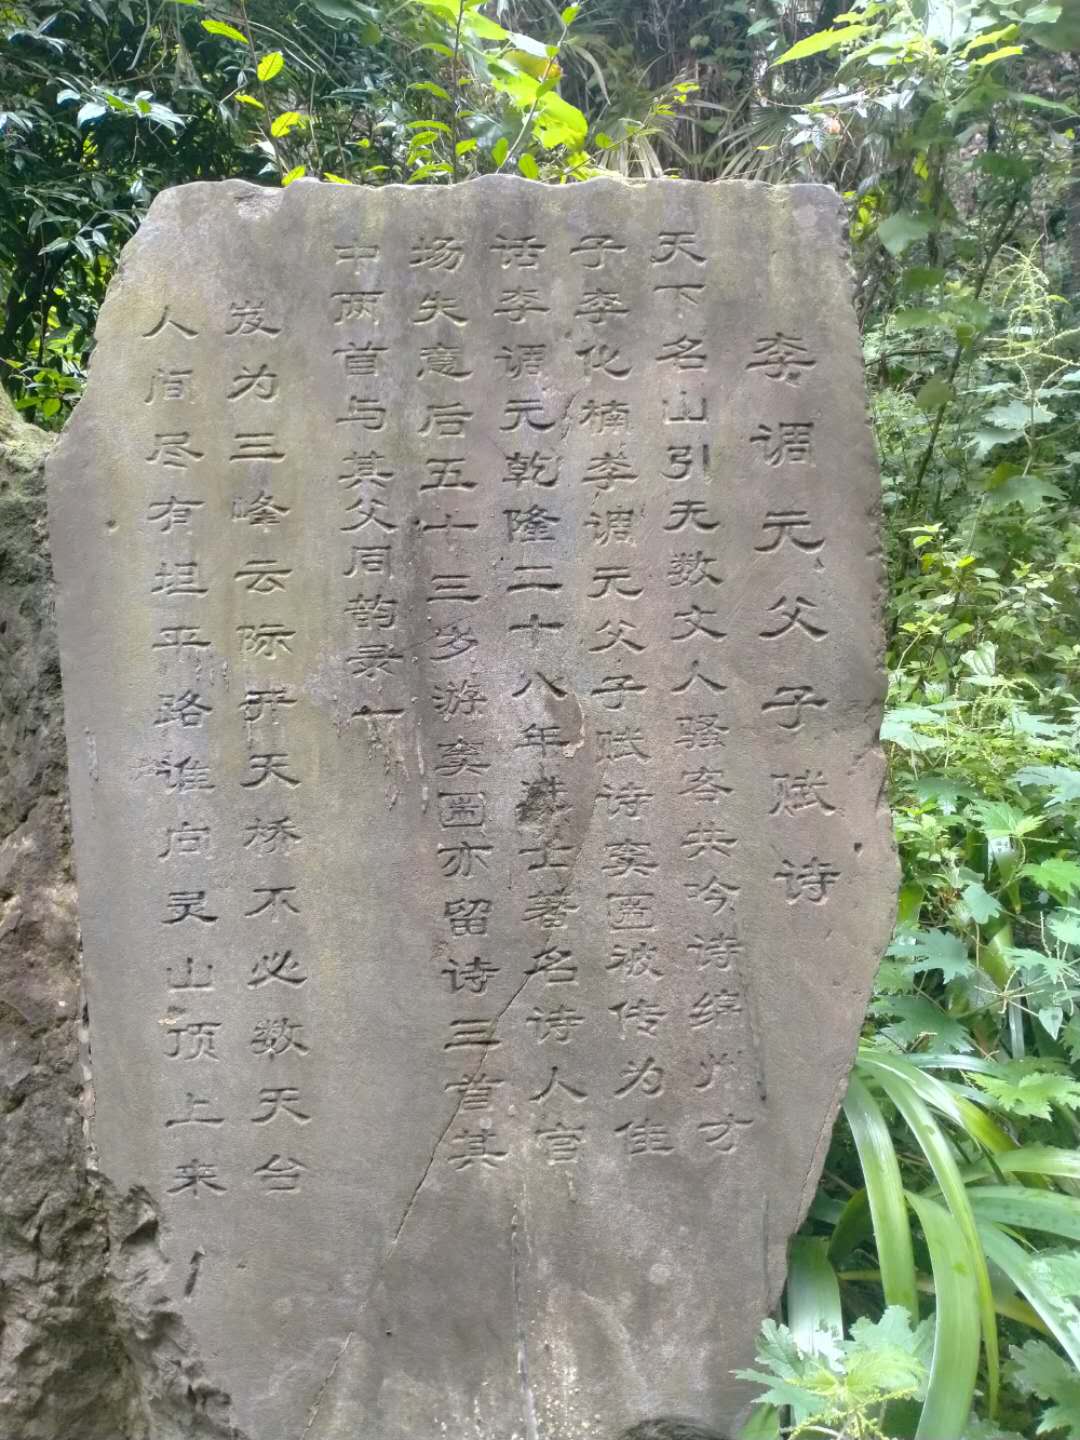 李调元父子赋诗
天下名山引无数文人骚客共吟诗绵州才
子李化楠李调元父子赋诗窦圌被传为佳
话李调元乾隆二十八年进士著名诗人官
场失意后五十三岁游窦圌亦留诗三首其
中两首与其父同韵录一
岌为三峰云际开天桥不必数天台
人间尽有坦平路谁向灵山顶上来